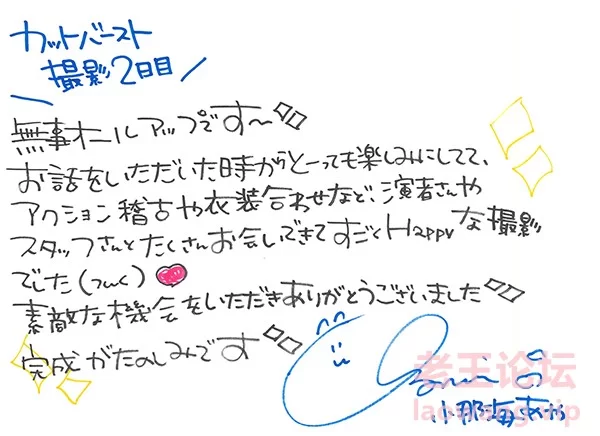 カットバースト
撮影2日目
無事オールアップです〜
お話をいただいた時からとーっても楽しみにしてて、
アクション稽古や衣装合わせなど、演者さんや
スタッフさんとたくさんお会いできてすごくHappyな撮影
でした(つんく)
素敵な機会をいただきありがとうございました
完成がたのしみです
小那海あや
老王论坛
laowang.vip